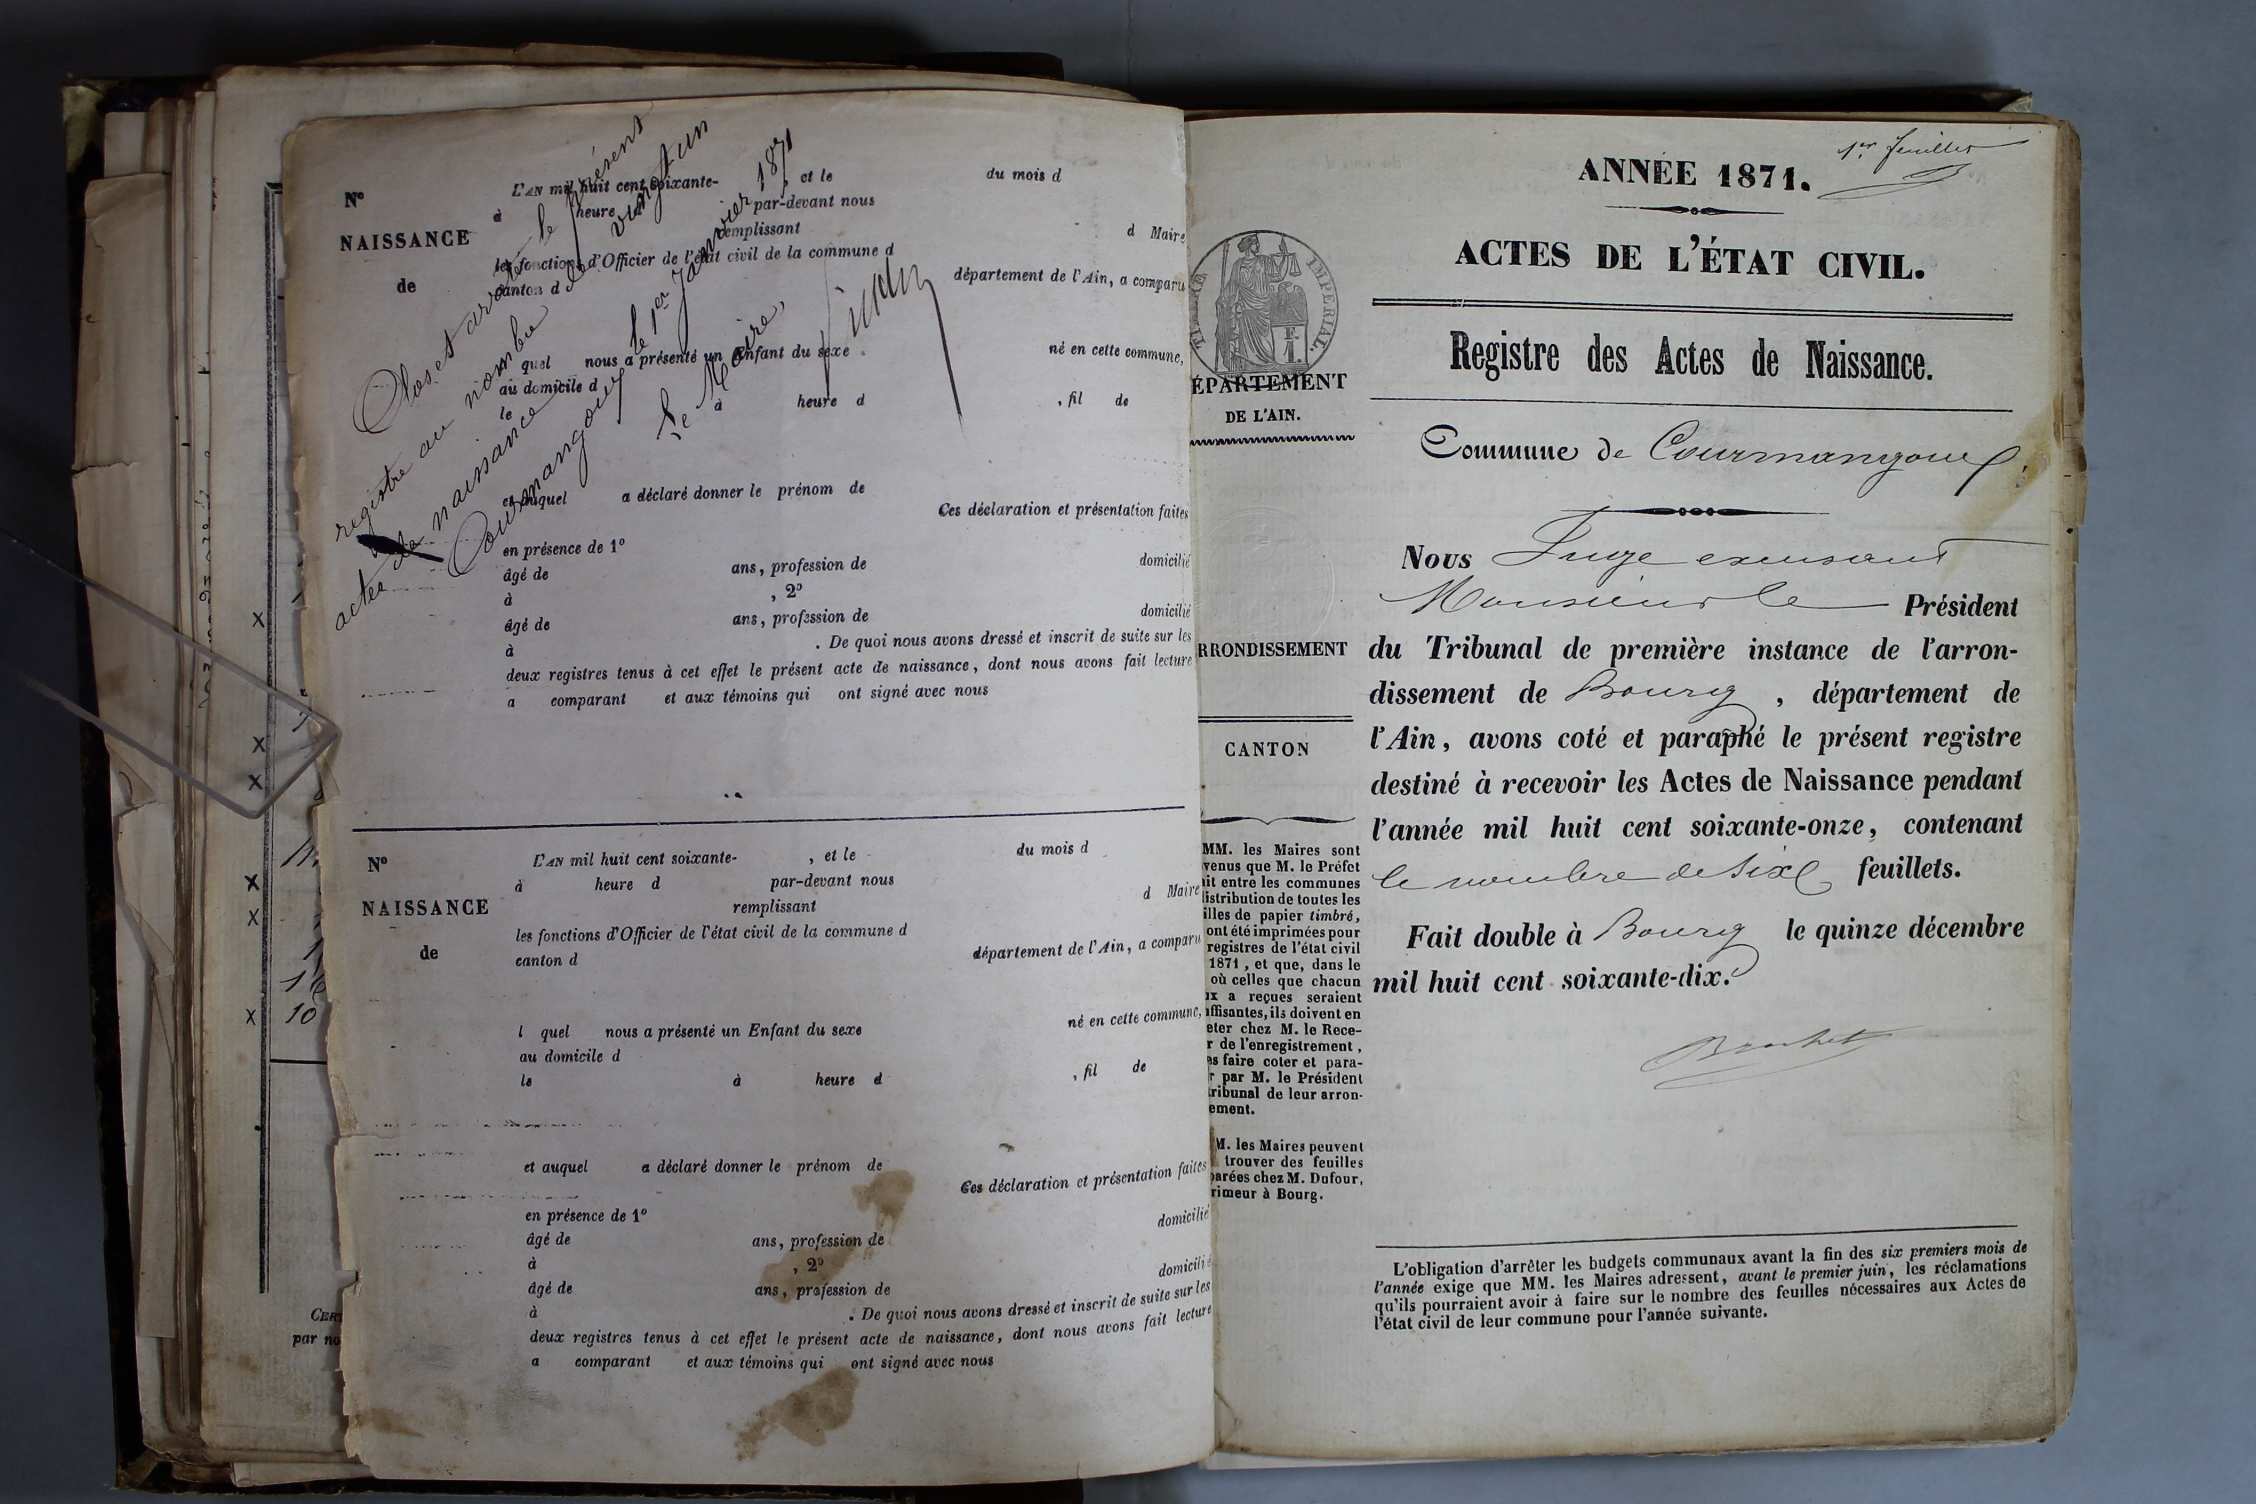 Clos et arrêté le présent
registre au nombre de vingt un
actes de naissance
Courmangoux le 1er Janvier 1871
Le Maire,
No
NAISSANCE
de
L'AN mil huit cent soixante- , et le du mois d
à heure d par-devant nous
remplissant d Maire
les fonctions d'Officier de l'état civil de la commune d
canton d département de l'Ain, a comparu
l quel nous a présenté un Enfant du sexe né en cette commune,
au domicile d
le à heure d , fil de
et auquel a déclaré donner le prénom de
Ces déclaration et présentation faites
en présence de 1o
âgé de ans, profession de domicilié
à , 2o
âgé de ans, profession de domicilié
à . De quoi nous avons dressé et inscrit de suite sur les
deux registres tenus à cet effet le présent acte de naissance, dont nous avons fait lecture
a comparant et aux témoins qui ont signé avec nous
No
NAISSANCE
de
L'AN mil huit cent soixante- , et le du mois d
à heure d par-devant nous
remplissant d Maire
les fonctions d'Officier de l'état civil de la commune d
canton d département de l'Ain, a comparu
l quel nous a présenté un Enfant du sexe né en cette commune,
au domicile d
le à heure d , fil de
et auquel a déclaré donner le prénom de
Ces déclaration et présentation faites
en présence de 1o
âgé de ans, profession de domicilié
à , 2o
âgé de ans, profession de domicilié
à . De quoi nous avons dressé et inscrit de suite sur les
deux registres tenus à cet effet le présent acte de naissance, dont nous avons fait lecture
a comparant et aux témoins qui ont signé avec nous
10
CER
par no
1er feuillet
ANNÉE 1871.
ACTES DE L'ÉTAT CIVIL.
Registre des Actes de Naissance.
TIMBRE IMPÉRIAL.
F.
1.
ÉPARTEMENT
DE L'AIN.
RRONDISSEMENT
CANTON
MM. les Maires sont
venus que M. le Préfet
ait entre les communes
distribution de toutes les
illes de papier timbré,
ont été imprimées pour
registres de l'état civil
1871, et que, dans le
où celles que chacun
ux a reçues seraient
uffisantes, ils doivent en
eter chez M. le Rece-
r de l'enregistrement,
es faire coter et para-
r par M. le Président
tribunal de leur arron-
ement.
M. les Maires peuvent
trouver des feuilles
parées chez M. Dufour,
rimeur à Bourg.
Commune de Courmangoux
Nous Juge excusant
Monsieur le Président
du Tribunal de première instance de l'arron-
dissement de Bourg , département de
l'Ain, avons coté et paraphé le présent registre
destiné à recevoir les Actes de Naissance pendant
l'année mil huit cent soixante-onze, contenant
le nombre de six feuillets.
Fait double à Bourg le quinze décembre
mil huit cent soixante-dix.
Brochet
L'obligation d'arrêter les budgets communaux avant la fin des six premiers mois de
l'année exige que MM. les Maires adressent, avant le premier juin, les réclamations
qu'ils pourraient avoir à faire sur le nombre des feuilles nécessaires aux Actes de
l'état civil de leur commune pour l'année suivante.